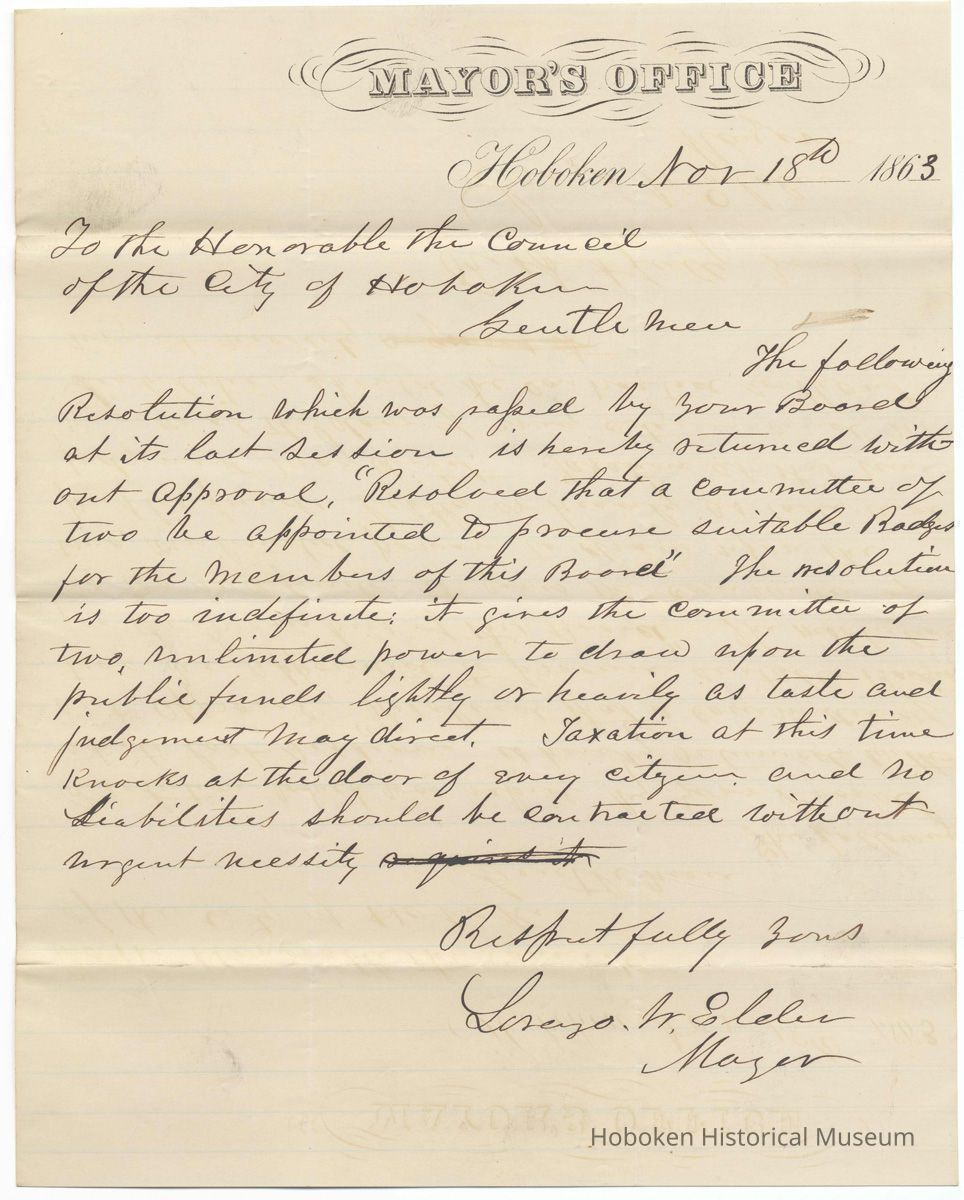 MAYOR'S OFFICE
Hoboken Nov 18th 1863
To the Honorable the Council
of the City of Hoboken
Gentlemen
The following
Resolution which was passed by your Board
at its last session is hereby returned with-
out approval, "Resolved that a committee of
two be appointed to procure suitable Badges
for the Members of this Board" The resolution
is too indefinite: it gives the committee of
two, unlimited power to draw upon the
public funds lightly or heavily as taste and
judgement May direct. Taxation at this time
Knocks at the door of every citizen and no
Liabilities should be contracted without
urgent necessity
Respectfully yours
Lorenzo. W. Elder
Mayor
Hoboken Historical Museum